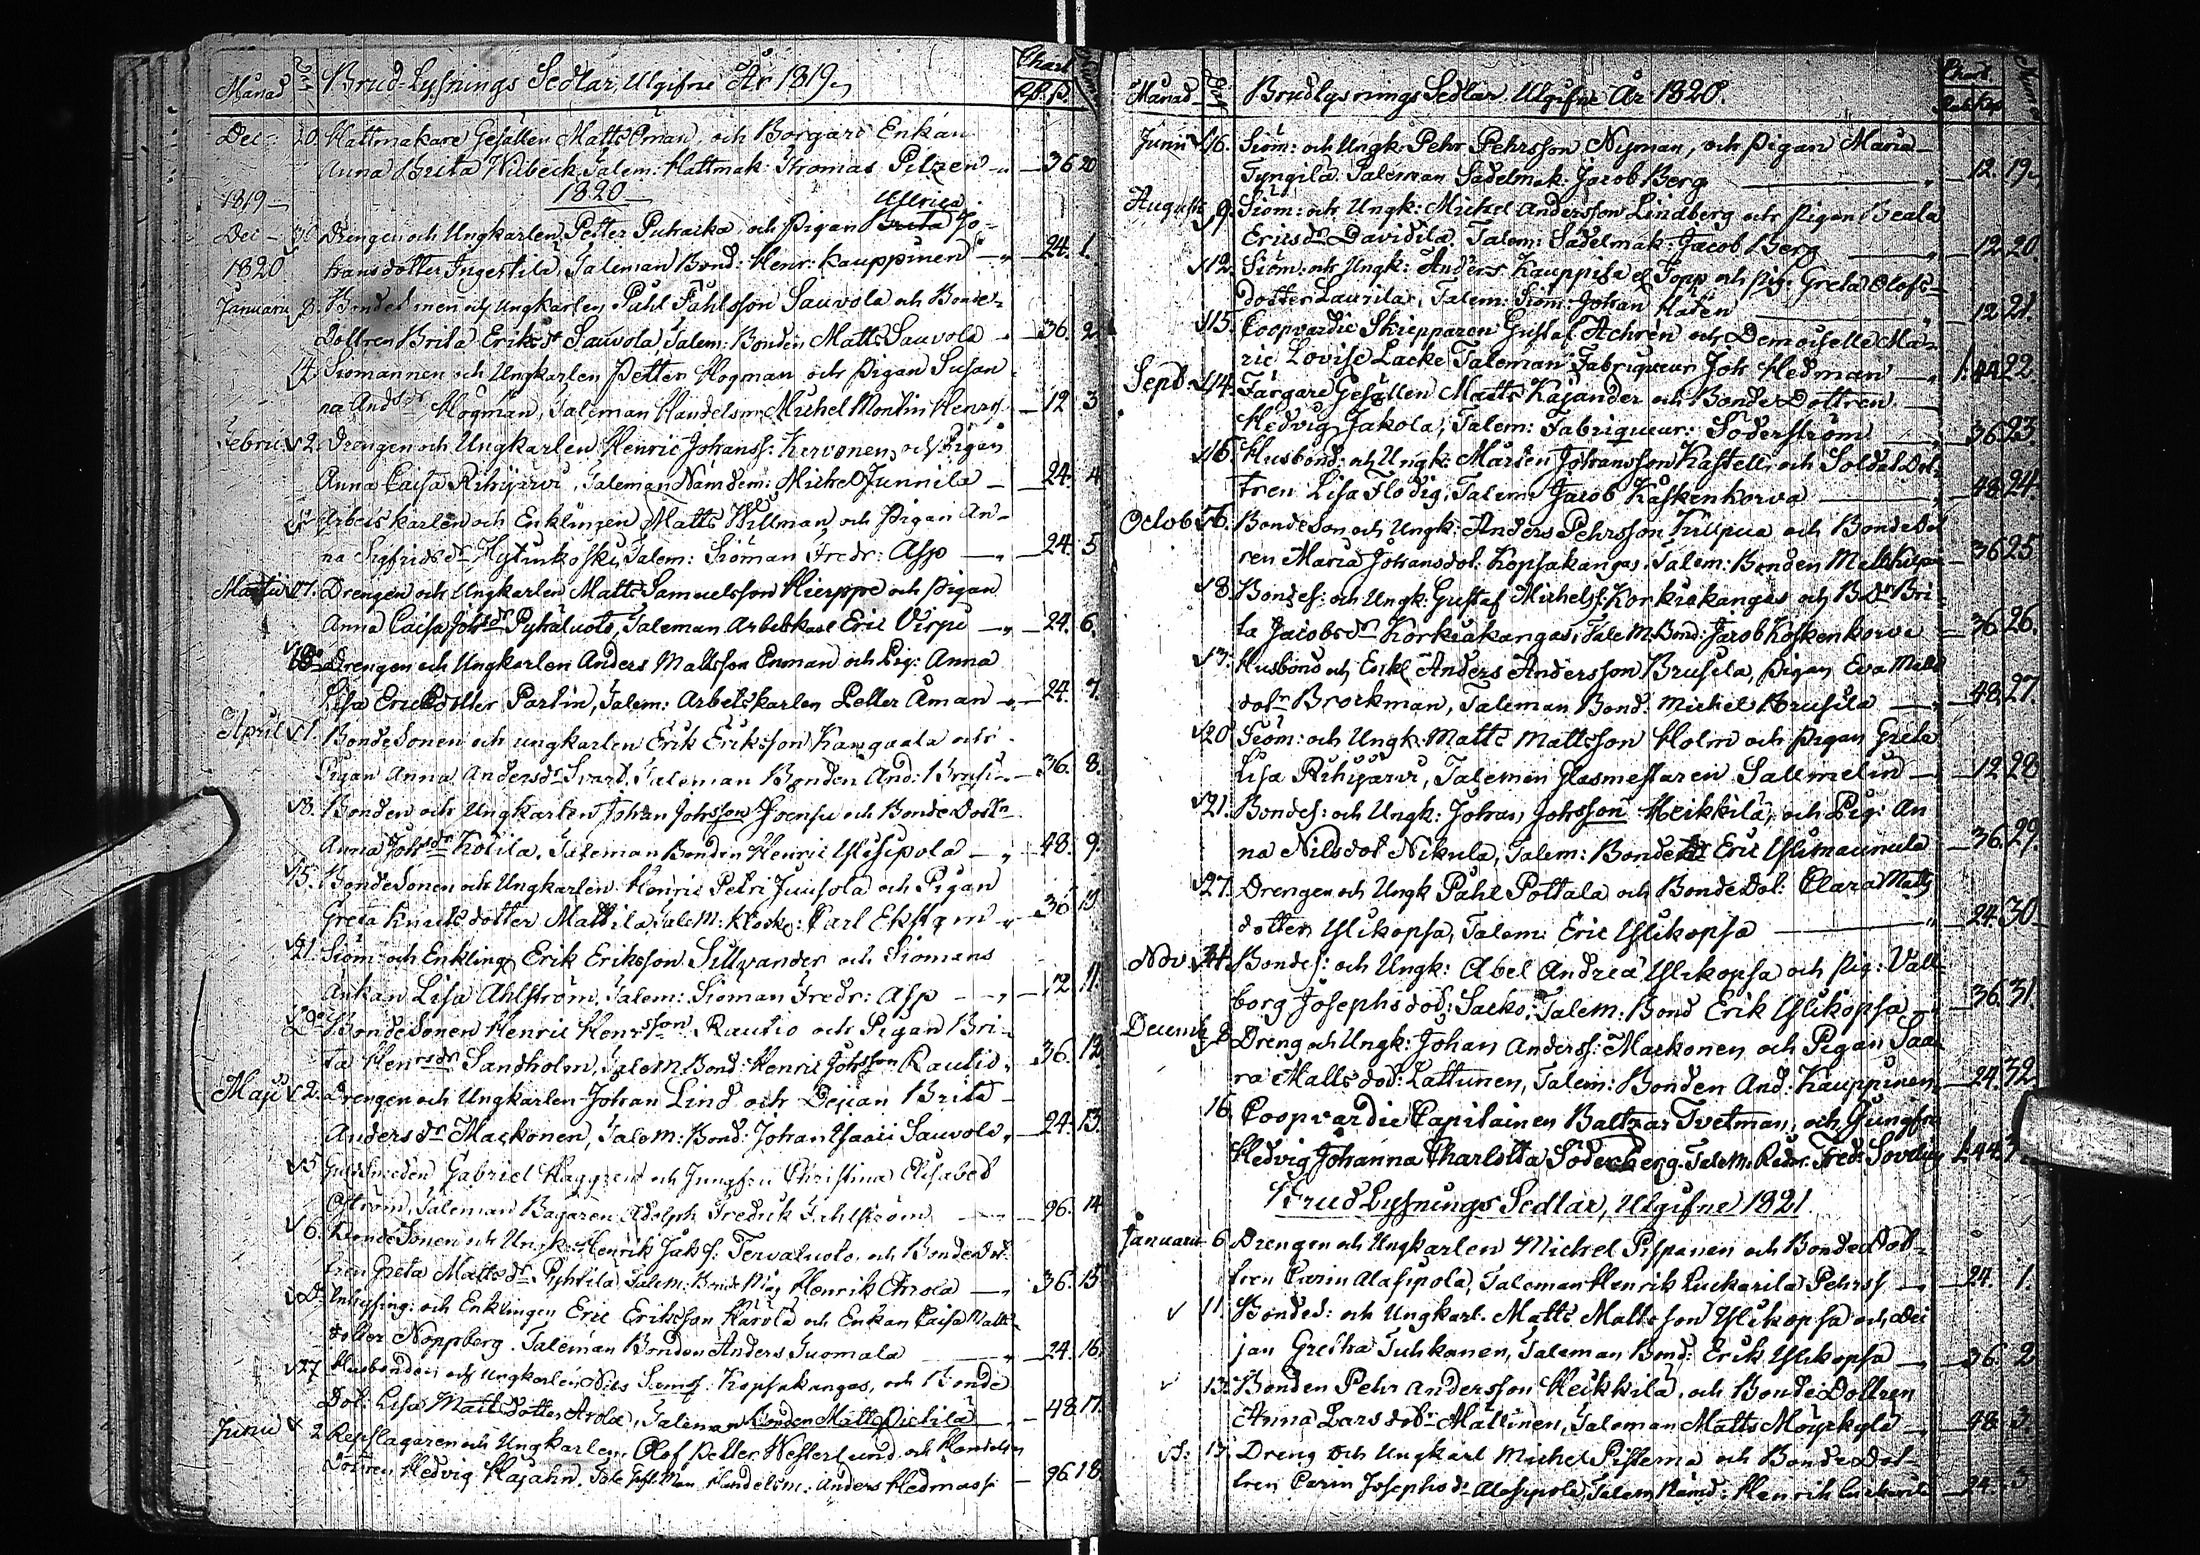 Månad Brud-Lysnings Sedlar, Utgifne År 1819.
Dec: 20. Hattmakare Gesällen Matts Öman, och Borgare Enkan
Anna Brita Wibeck, Talem: Hattmak: Thomas Pilzen — 36 20
1819 — 1820 — Ullrica
Dec — Drengen och Ungkarlen Petter Puhaika och Pigan Brita Jo-
1820 hansdotter Ingertila, Taleman Bond: Henr: Kauppinen — 24. 1.
Januarii 8. Bonden och Ungkarlen Påhl Påhlsson Sauvola och Bonde
Dottren Brita Eriksdr Sauvola, Talem: Bonden Matts Sauvola — 36. 2.
14. Siömannen och Ungkarlen Petter Hogman och Pigan Susan
na Andsdr Hogman, Taleman Handelsm: Michel Montin Henrs — 12 3
Febru: 2. Drengen och Ungkarlen Henric Johanss: Kervonen, och Pigan
Anna Caisa Rihijärvi, Taleman Nämdem: Michel Junnila — 24. 4
Arbets karlen och Enklingen Matts Willman och Pigan An-
na Sigfridsdr Hytinkoski, Talem: Siöman Fredr: Asp — 24. 5
Martii 17. Drengen och Ungkarlen Matts Samuelsson Hierppe och Pigan
Anna Caisa Johsdr Pyhäluoto, Taleman Arbetskarl Eric Virpi — 24. 6.
18. Drengen och Ungkarlen Anders Mattsson Enman och Pig: Anna
Lisa Ericsdotter Partin, Talem: Arbetskarlen Petter Åman — 24. 7.
April 1. BondeSonen och ungkarlen Erik Eriksson Kangaala och
Pigan Anna Andersdr Svard, Taleman Bonden And: — 36. 8.
8. Bonden och Ungkarlen Johan Johsson Joensu och Bonde Dottn
Anna Johsdr Kotila, Taleman Bonden Henric Ylisipola — 48. 9.
15. BondeSonen och Ungkarlen Henric Petri Juusola och Pigan
Greta Knutsdotter Mattila, Talem: Klock: Carl Ekstam — 36 10
21. Siöm: och Enkling: Erik Eriksson Sillvander och Siömans
Änkan Lisa Ahlström, Talem: Siöman Fredr: Asp — 12 11.
BondeSonen Henric Henrsson Rautio och Pigan Bri-
ta Henrsdr Sandholm, Talem Bond: Henric Johsson Rautio, 36. 12.
Maji 2. Drengen och Ungkarlen Johan Lind och Pejian Brita
Andersdr Mackonen, Talem: Bond: Johan Sauvola, — 24. 13.
5 Guldsmeden Gabriel Haggren och Jungfru Christina Elisabet
Öström, Taleman Bagaren Adolph Fredrik Fahlström — 96. 14
6. BondeSonen och Ungk: Henrik Jaks: Tervaluoto, och BondeDot
tren Greta Mattsdr Pyhtilä Talem: Henrik Arola — 36. 15
Inhysing: och Enklingen Eric Eriksson Harola och Enkan Caisa Matts
dotter Noppberg. Taleman Bonden Anders Suomala — 24. 16
27 Husbonden och Ungkarlen Nils Kopsakangas, och Bonde
Dot: Lisa Mattsdotter Arola, Taleman Bonden Matts Pietilä — 48 17.
Junii 2 Repslagaren och Ungkarlen Olof Petter Westerlund och Handelsm
Dottren Hedvig Hajahn, Handelsm: Anders Hedmass — 96 18
Månad Dag Brudlysnings Sedlar, Utgifne År 1820.
Junii 16. Siöm: och Ungk: Pehr Pehrsson Nyman, och Pigan Maria
Tyngilä. Taleman Sadelmak: Jacob Berg — 12. 19.
August 9. Siöm: och Ungk: Michel Andersson Lindberg och Pigan Beata
Ericsdr Davidila. Talem: Sadelmak: Jacob Berg — 12 20.
12. Siöm: och Ungk: Anders Kauppila el Topp och Pig: Greta Olofs-
dotter Laurila, Talem: Siöm: Johan Hatén — 12 21.
15. Coopvardie Skepparen Gustaf Achrén och Demoiselle Ma-
rie Lovise Lacke Taleman Fabriqueur Joh Hedman — 1.44 22.
Sept: 14. Färgare Gesällen Matts Kajander och Bonde Dottren
Hedvig Jakola, Talem: Fabriqueur: Söderström — 36 23.
16. Husbond: och Ungk: Mårten Johansson Kastell, och Soldat Dot-
tren Lisa Flodig, Talem: Jacob Kåskenkorva — 48 24.
Octob: 6. BondeSon och Ungk: Anders Pehrsson Kilpua och BondeDot
ren Maria Johansdot: Kopsakangas. Talem: Bonden Matts Kilpua — 36 25
8. Bondes: och Ungk: Gustaf Michelss: Korkiakangas och B Dr Bri-
ta Jacobsdr Korkiakangas, Talem Bond: Jacob Koskenkorva — 36. 26.
13. Husbond och Enkl Anders Andersson Brusila, Pigan Eva Matts
dotr Brockman, Taleman Bond: Michel Brusila — 48. 27.
20 Siöm: och Ungk: Matts Mattsson Holm och Pigan Greta
Lisa Rihijärvi, Taleman Glasmestaren Sallmelin — 12 28
21. Bondes: och Ungk: Johan Johsson Heikkilä, och Pig: An
na Nilsdot Nikula, Talem: Bonde Eric Ylimaunula — 36. 29.
27. Drengen och Ungk Påhl Pottala och BondeDot: Clara Matts
dotter Ylikopsa, Talem: Eric Ylikopsa — 24. 30
Nov. Bondes: och Ungk: Abel Andreä Ylikopsa och Pig: Vall-
borg Josephsdot: Sacko, Talem: Bond Erik Ylikopsa — 36. 31.
Decemb: 8 Dreng och Ungk: Johan Anders: Mackonen, och Pigan Saa-
ra Matts dot: Lattunen, Talem: Bonden And: Kauppinen, — 24. 32.
16. Coopvardie Capitainen Baltzar Tvetman, och Jungfru
Hedvig Johanna Charlotta Söderberg. Talem. Fred: 1.44. 3
Brud Lysnings Sedlar, Utgifne 1821.
Januarii 6. Drengen och Ungkarlen Michel Pispanen och BondeDot-
tren Carin Alasipola, Taleman Henrik Luckarila Pehrss — 24. 1.
11. Bondes: och Ungkarl. Matts Mattsson Ylikopsa och Pei
jan Gretha Tuhkanen, Taleman Bond: Erik Ylikopsa — 36. 2
13. Bonden Pehr Andersson Heikkilä, och BondeDottren
Anna Larsdotr Mattinen, Taleman Matts — 48. 3.
13. Dreng och Ungkarl Michel Pistemä och BondeDot-
tren Carin Josephsdr Alasipola, Talem Nämd: Henrik — 24. 3.